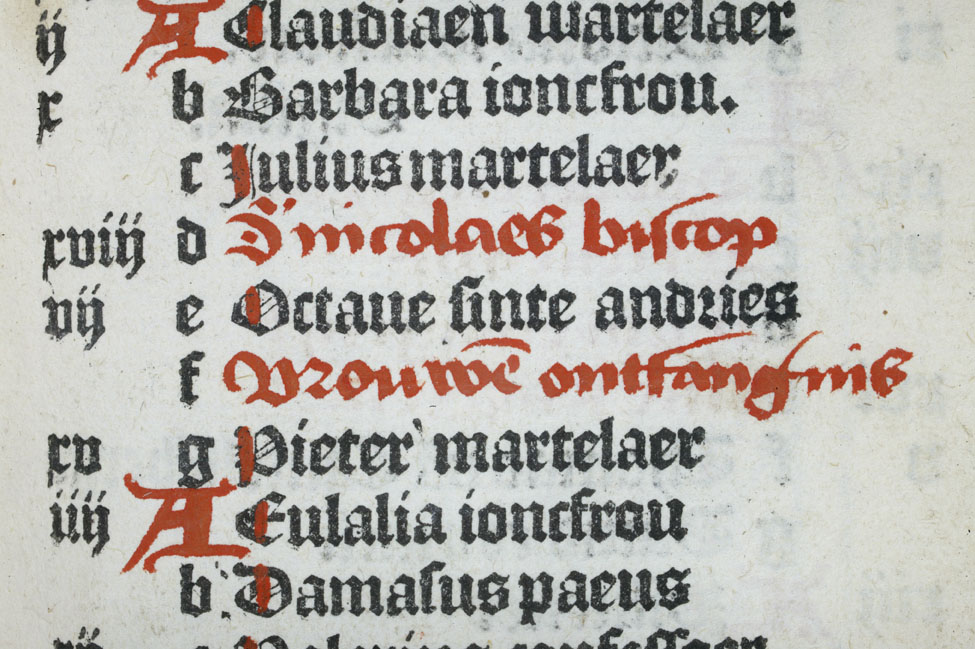 ij A Claudiaen martelaer
x b Barbara ioncfrou.
c Julius martelaer
xviij d S nicolaes biscop
vij e Octaue sinte andries
f Vrouwē ontfangnis
xv g Pieter martelaer
iiij A Eulalia ioncfrou
b Damasus paeus
confessoer